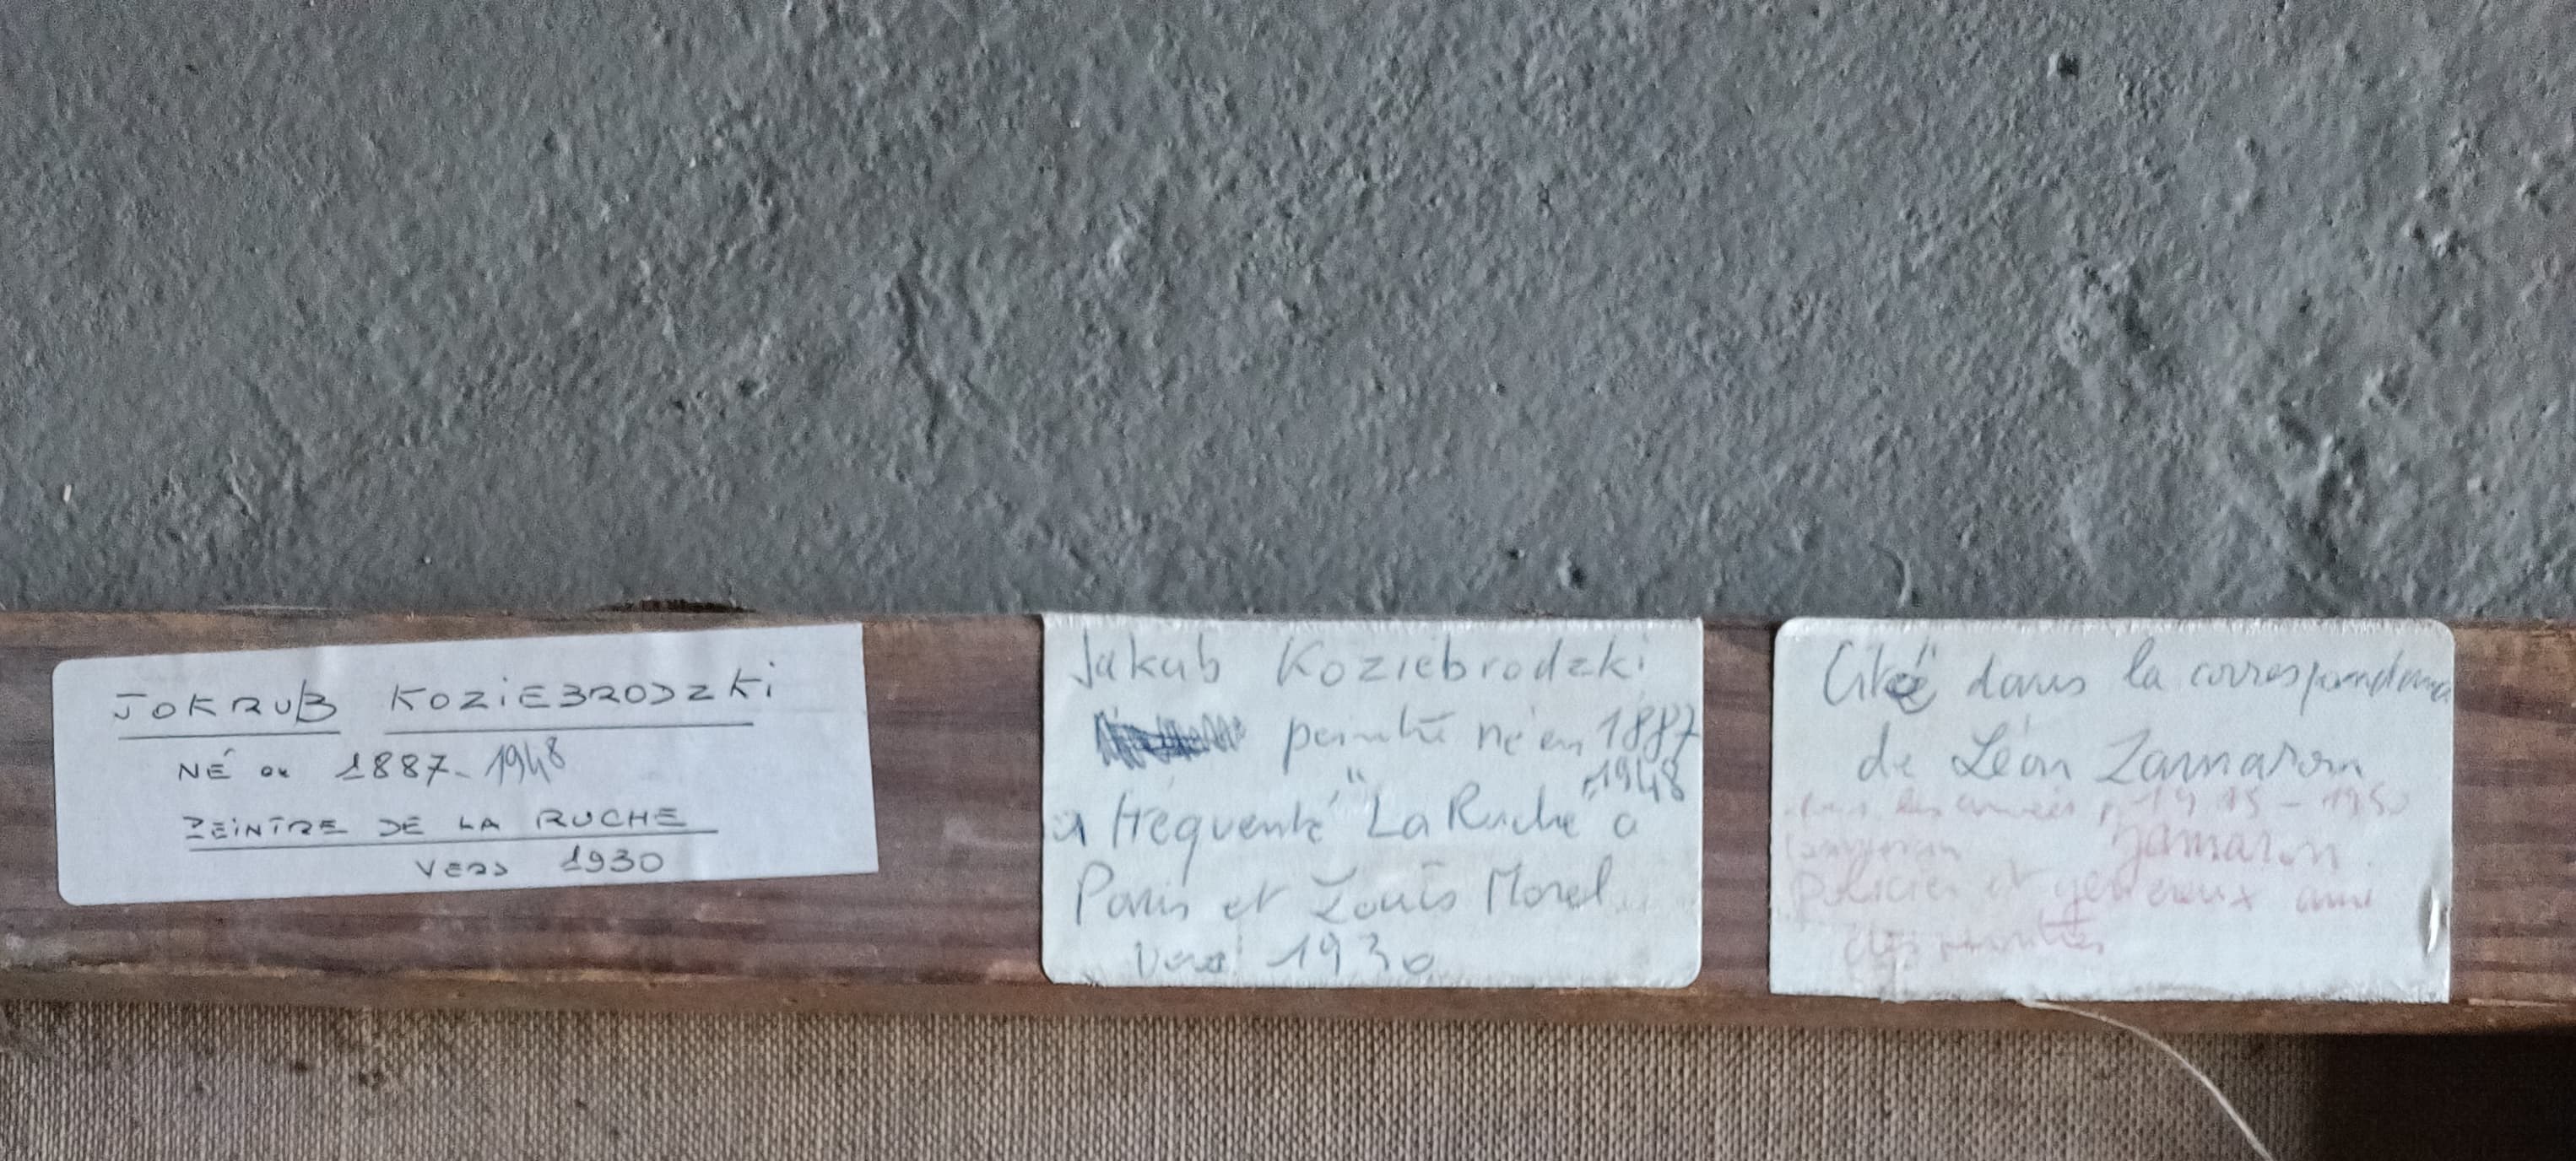 JOKRUB KOZIEBRODZKI
NÉ en 1887-1948
PEINTRE DE LA RUCHE
VERS 1930
Jakub Koziebrodzki
peintre né en 1887
-1948
a fréquenté "La Ruche" a
Paris et Louis Morel
vers 1930
Cité dans la correspondance
de Léon Zamaron
les années 1915-1950
Zamaron
Policier et généreux ami
des peintres